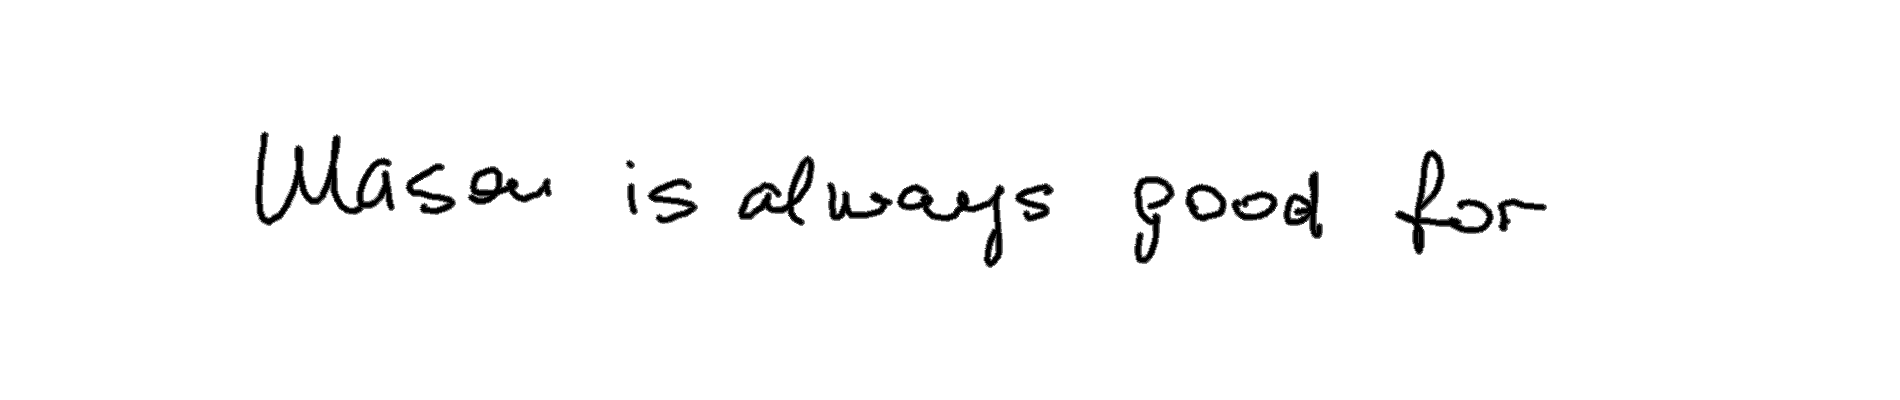 Mason is always good for